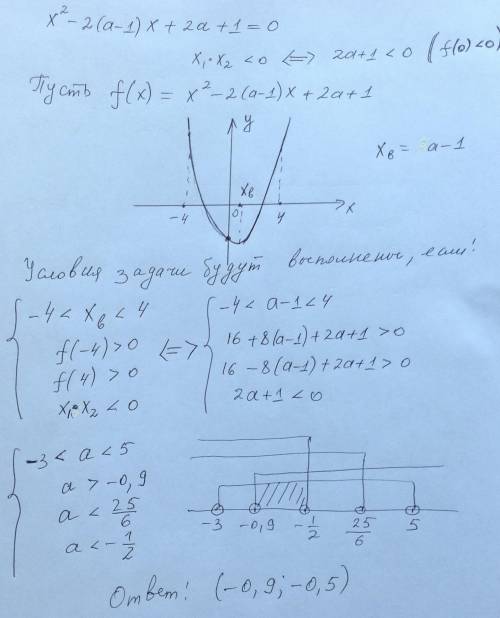 x² - 2(a-1)x + 2a + 1 = 0
x₁·x₂ < 0 <=> 2a+1 < 0 (f(0)<0)
Пусть f(x) = x² - 2(a-1)x + 2a + 1
y
x_в = a-1
x_в
-4 0 4 x
Условия задачи будут выполнены, если!
{ -4 < x_в < 4
f(-4) > 0
f(4) > 0
x₁·x₂ < 0
<=>
{ -4 < a-1 < 4
16 + 8(a-1) + 2a + 1 > 0
16 - 8(a-1) + 2a + 1 > 0
2a + 1 < 0
{ -3 < a < 5
a > -0,9
a < 25/6
a < -1/2
-3 -0,9 -1/2 25/6 5
Ответ! (-0,9; -0,5)